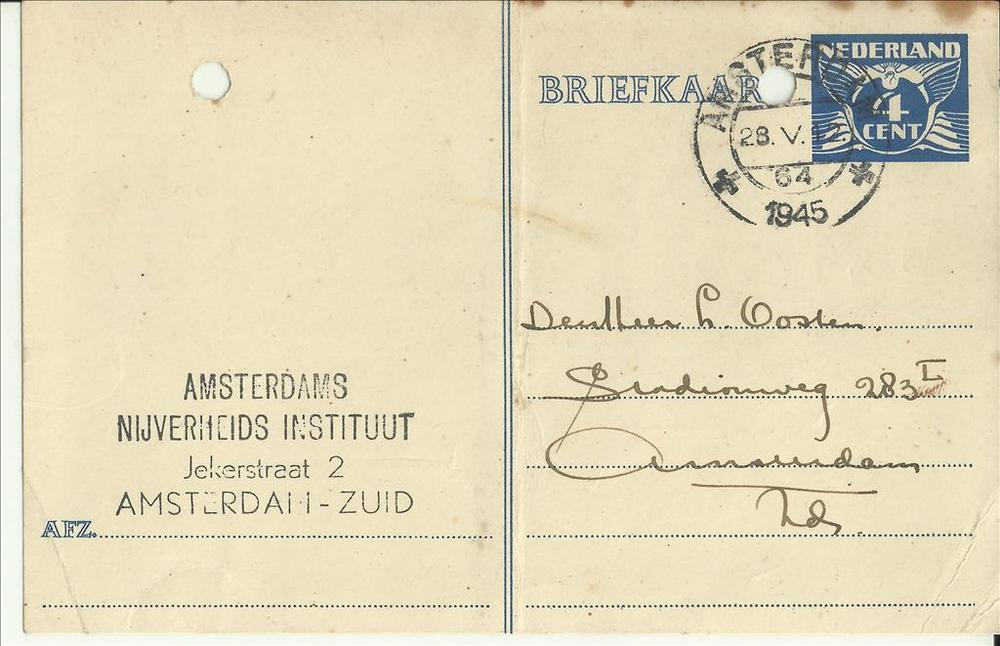 BRIEFKAAR
NEDERLAND
4
CENT
AMSTERDAM
28. V. 12.
64
1945
Den Heer L. Oosten.
Stadionweg 283 I
Amsterdam
Zd.
AMSTERDAMS
NIJVERHEIDS INSTITUUT
Jekerstraat 2
AMSTERDAM-ZUID
AFZ.